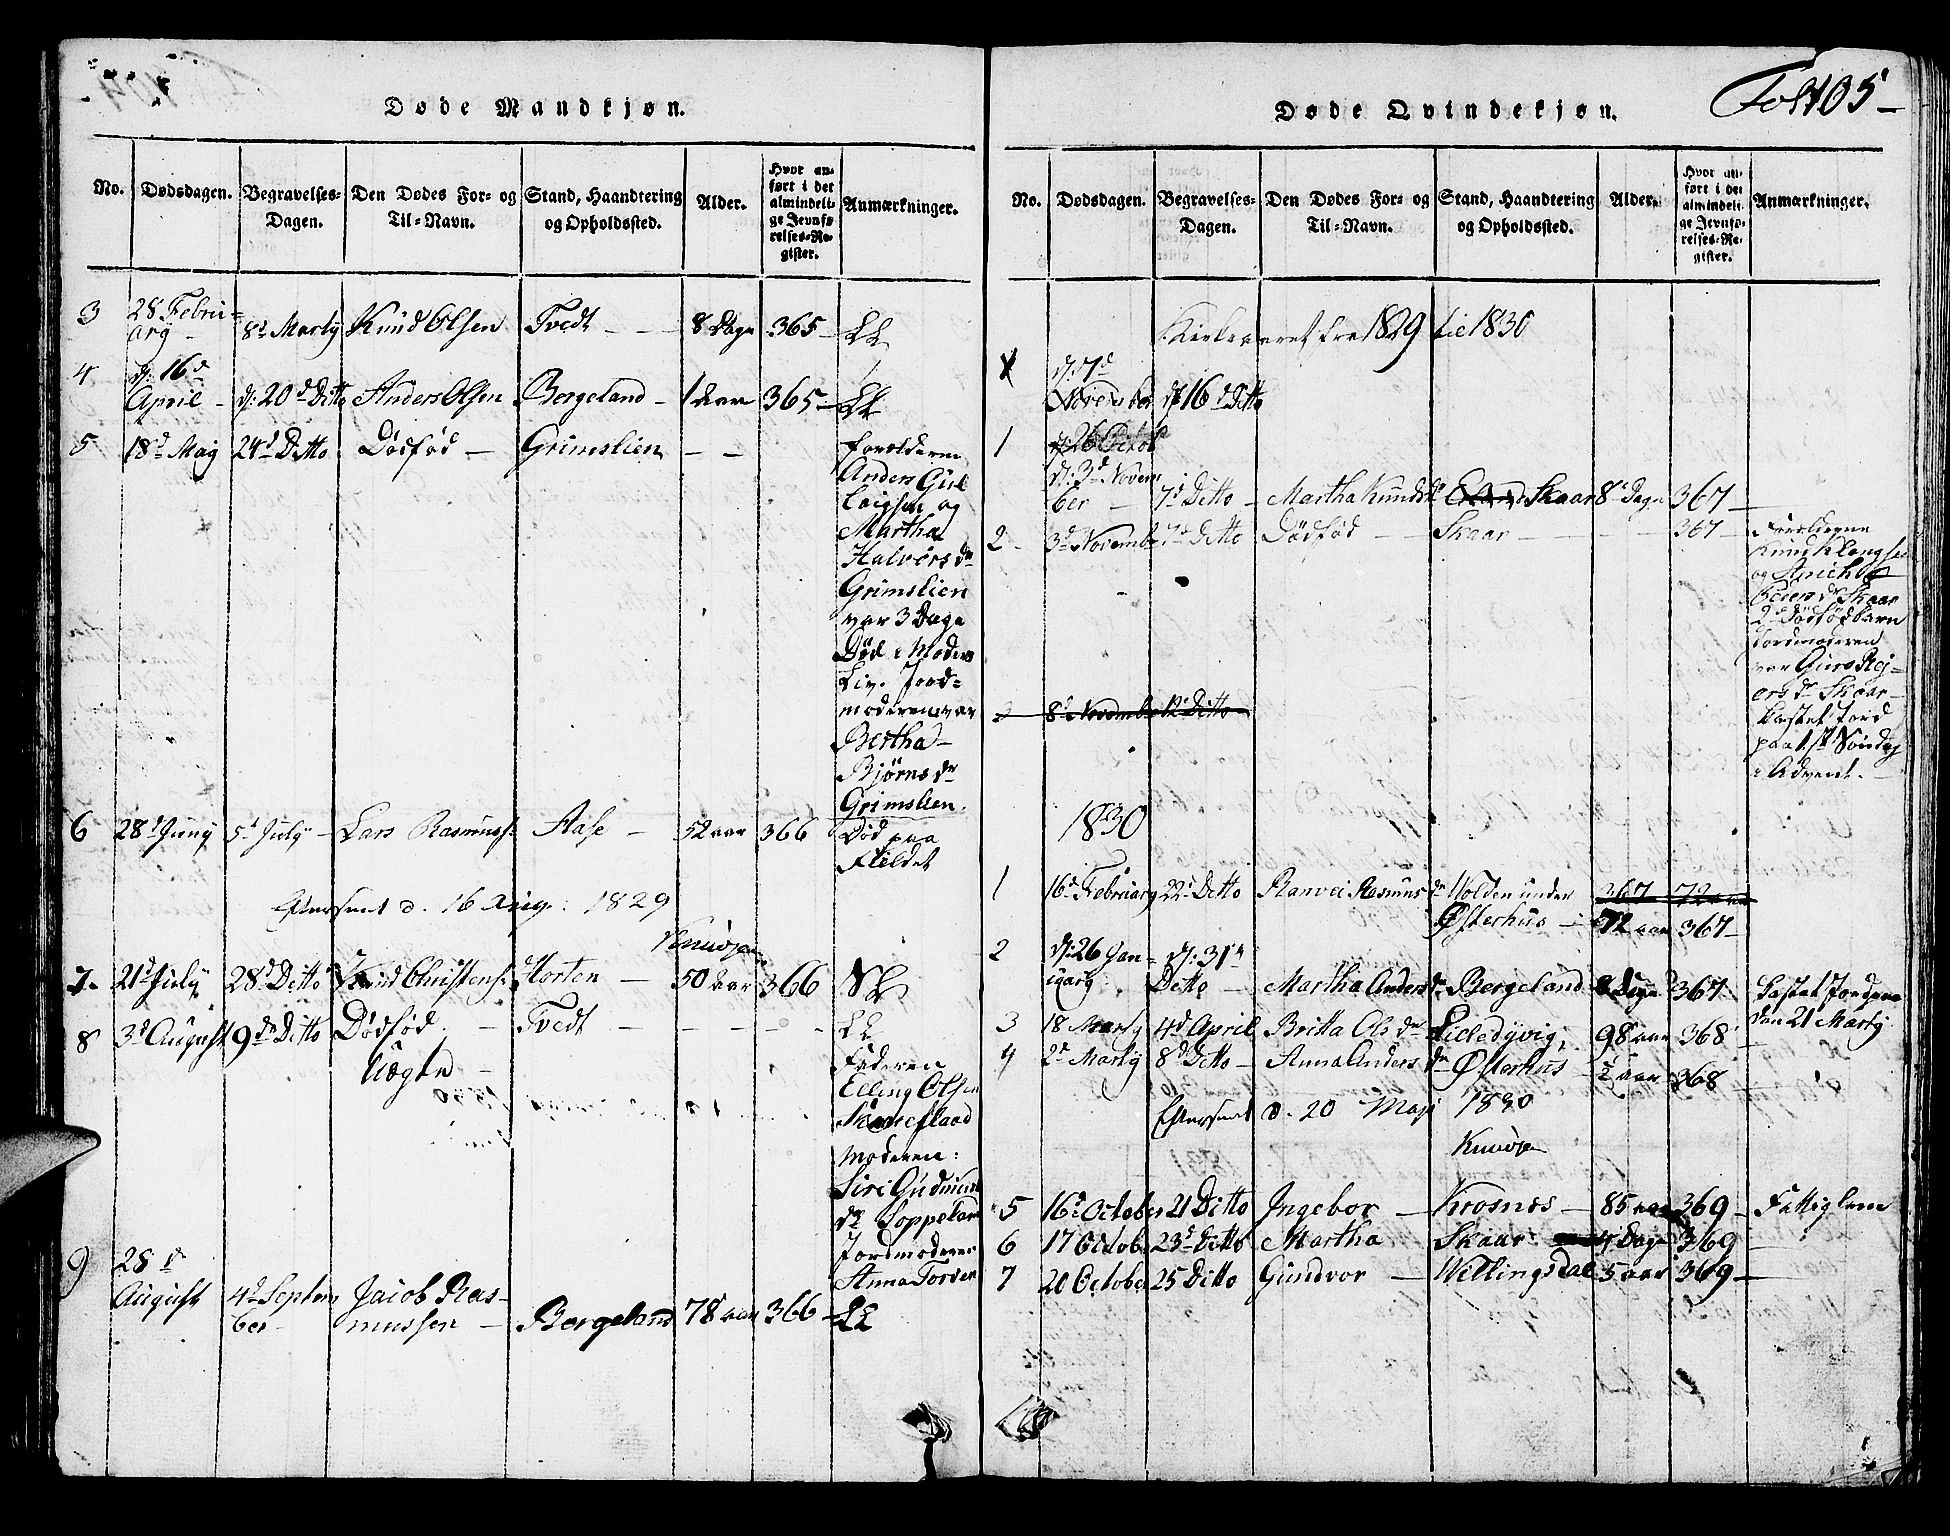 Døde Mandkjøn.
No. Dødsdagen. Begravelses-Dagen. Den Dødes For- og Til-Navn. Stand, Haandtering og Opholdssted. Alder. Hvor anført i det almindelige Jevnførelses-Register. Anmærkninger.
3 28 Febru-
ary 8d Marty Knud Olsen Tvedt 8 Dage 365
4 d: 16d
April d: 20d Ditto Anders Olsen Bergeland 1 Aar 365
5 18d May 24d Ditto Dødfød Grimslien
Forælderne
Anders Gul
og
Martha
Halvorsdr
Grimslien
var 3 Dage
Død i Moders
Liv. Jord=
moderen var
Bertha
Bjørns dr
Grimslien.
6 28d Juny 5d July Lars Rasmuss: Aase 52 aar 366 Død paa
Fieldet
Efterseet d. 16 Aug: 1829
7 21d July 28d Ditto Christens: Horten 50 Aar 366
8 3d August 9de Ditto Dødfød Tvedt
Uægte
Faderen
Elling Olsen
Moderen:
Siri Gudmund
dr
Jordmoderen
Anna
9 28d
August 4d Septem
ber Jacob Ras-
mussen Bergeland 78 aar 366
Døde Qvindekjøn. Fol 105
No. Dødsdagen. Begravelses-Dagen. Den Dødes For- og Til-Navn. Stand, Haandtering og Opholdssted. Alder. Hvor anført i det almindelige Jevnførelses-Register. Anmærkninger.
Kirkeaaret fra 1829 til 1830
d: 7d
November d: 16d Ditto
1 d: 26 Octob
d: 3d Novem
ber 7d Ditto Martha Knudsdr Skaar 8 Dage 367
2 3d Novembr 7d Ditto Dødfød Skaar 367 Forælderne
Knud
og
dr Skaar
2d Dødfød barn
Jordmoderen
var
dr Skaar
Kastet Jord
paa 1st Søndag
i Advent.
3 8d Novembr 12d Ditto
1830
1 16d February 22d Ditto Ranvei Rasmus dr Holden under 367 72 aar
Østerhus 72 aar 367
2 d: 26 Jan=
uary d: 31te
Ditto Martha Anders dr Bergeland Dage 367 Kastet Jord paa
den 21 Marty
3 18 Marty 4d April Britta Ols dr 98 aar 368
4 2d Marty 8d Ditto Anna Anders dr Østerhus ½ aar 368
Efterseet d. 20 Maji 1830
5 16d October 21 Ditto Ingebor Krosnes 85 aar 369 Fattiglem
6 17 Octob 23d Ditto Martha Skaar 4 Dage 369
7 20 October 25 Ditto Gundvor Wellingsdal 5 aar 369